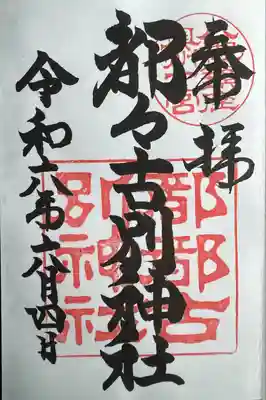 奉拝
都々古別神社
令和六年六月四日
都都古
神社